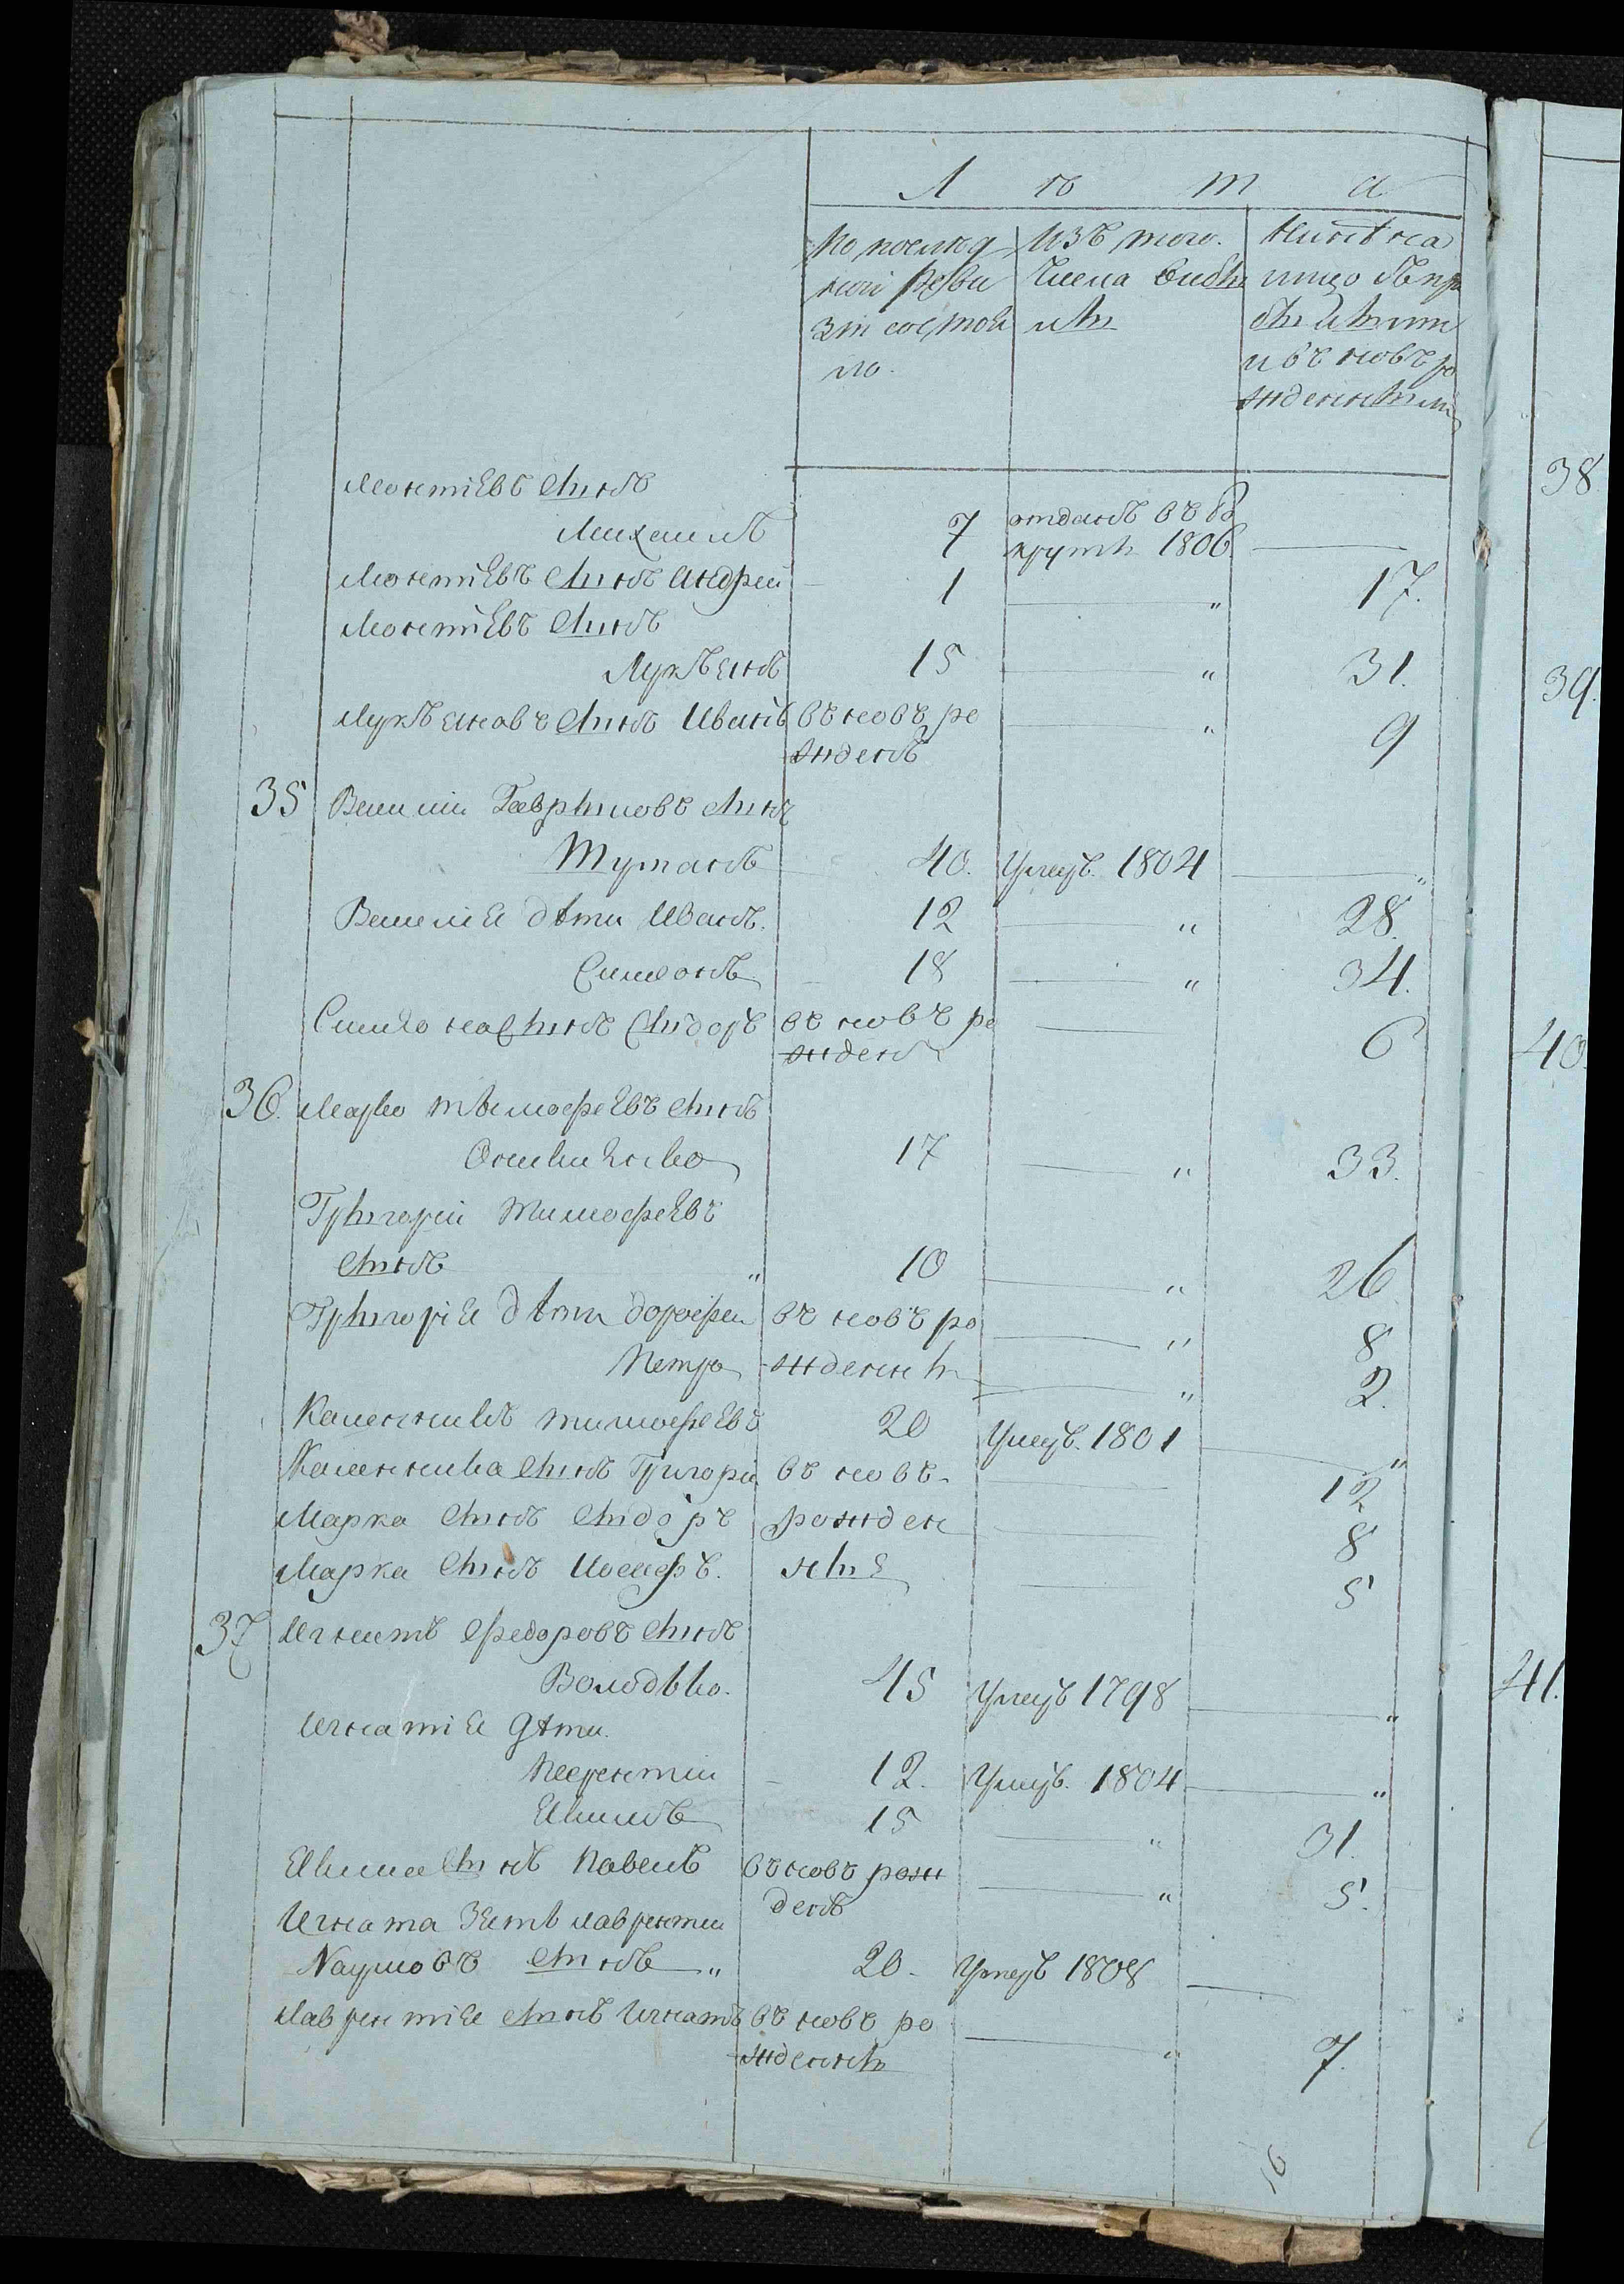 Лѣта
По послѣд
ней реви
зіи состоя
ло.
Изъ того
числа выбы
ли
Нынѣ на
лицо съ при
былыми
и въ новъ ро
жденными
Леонтіевъ сынъ
Михаилъ 7 отданъ въ ре
круты 1806
Леонтіевъ сынъ Андрей 1 „ 17.
Леонтіевъ сынъ
Лукъянъ 15 „ 31.
Лукъяновъ сынъ Иванъ въ новъ ро „ 9
жденъ
35 Василій Гаврыловъ сынъ
40. Умеръ. 1804 „
Василія дѣти Иванъ. 12 „ 28.
Симонъ 18 „ 34.
Симона сынъ Сыдоръ въ новъ ро 6
жденъ
36. Марко тымофеевъ сынъ
17 „ 33.
Грыгорій тимофеевъ
сынъ „ 10 „ 26
Грыгорія дѣти дорофей въ новъ ро „ 8
Петро жденны „ 2.
тимофеевъ 20 Умеръ. 1801 „
сынъ Григорій въ новъ 12
Марка сынъ Сыдоръ рожден 8
Марка сынъ Иосифъ. ные 5
37 Игнатъ Федоровъ сынъ
Володько. 45 Умеръ 1798 „
Игнатія дѣти.
12. Умеръ. 1804 „
Якимъ 15 „ 31.
Якима сынъ Павелъ въ новъ рож „ 5.
денъ
Игната зять лаврентій
Наумовъ сынъ „ 20. Умеръ 1808
Лаврентія сынъ Игнатъ въ новъ ро „ 7.
жденны
16
38.
39.
40.
41.